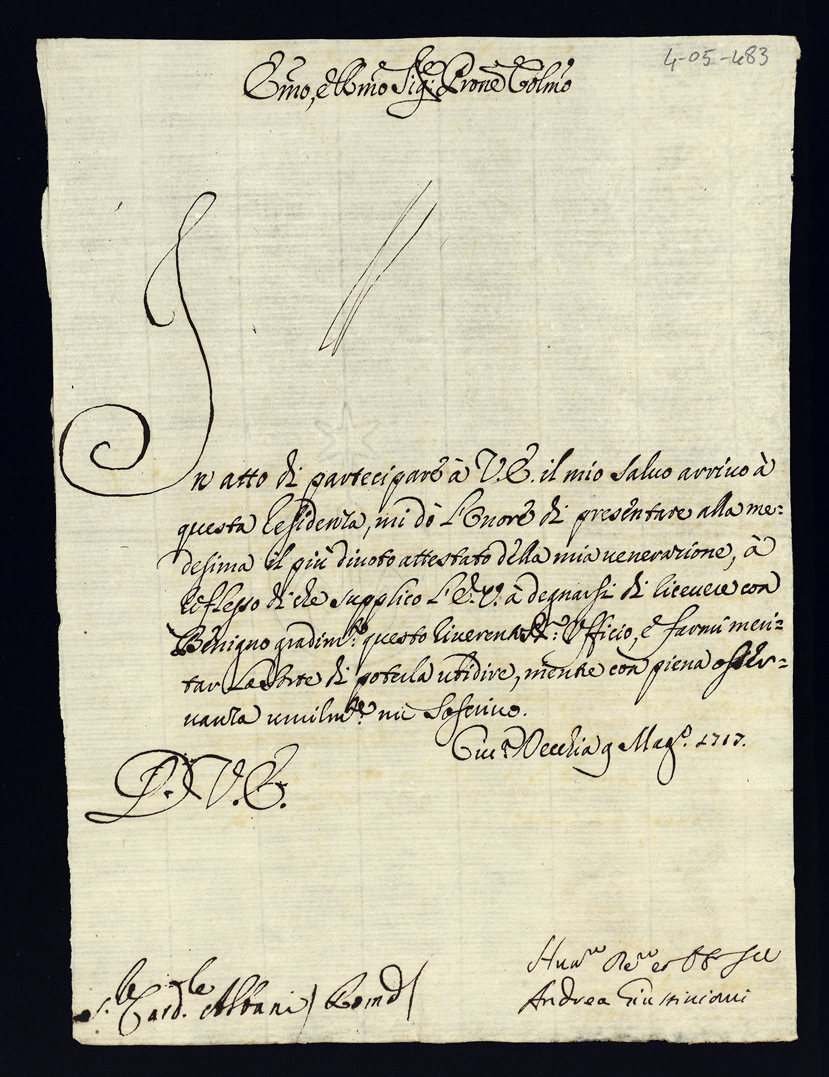 4-05-483
Emo, e Rmo Sig:re Prone Colmo
In atto di partecipare à V.E. il mio salvo arrivo à
questa Residenza, mi dò l'Onore di presentare alla me=
desima il più divoto attestato della mia venerazione, à
reflesso di che supplico l'E.V. à degnarsi di ricevere con
Benigno gradim.to questo riverente Uffìcio, e farmi meri=
tar la sorte di poterla ubidire, mentre con piena osser=
vanza umilm.te mi soscrivo.
Civ.a Vecchia 9 Mag.o 1717.
D. V. E.
Card.le Albani / Roma /
Andrea Giustiniani